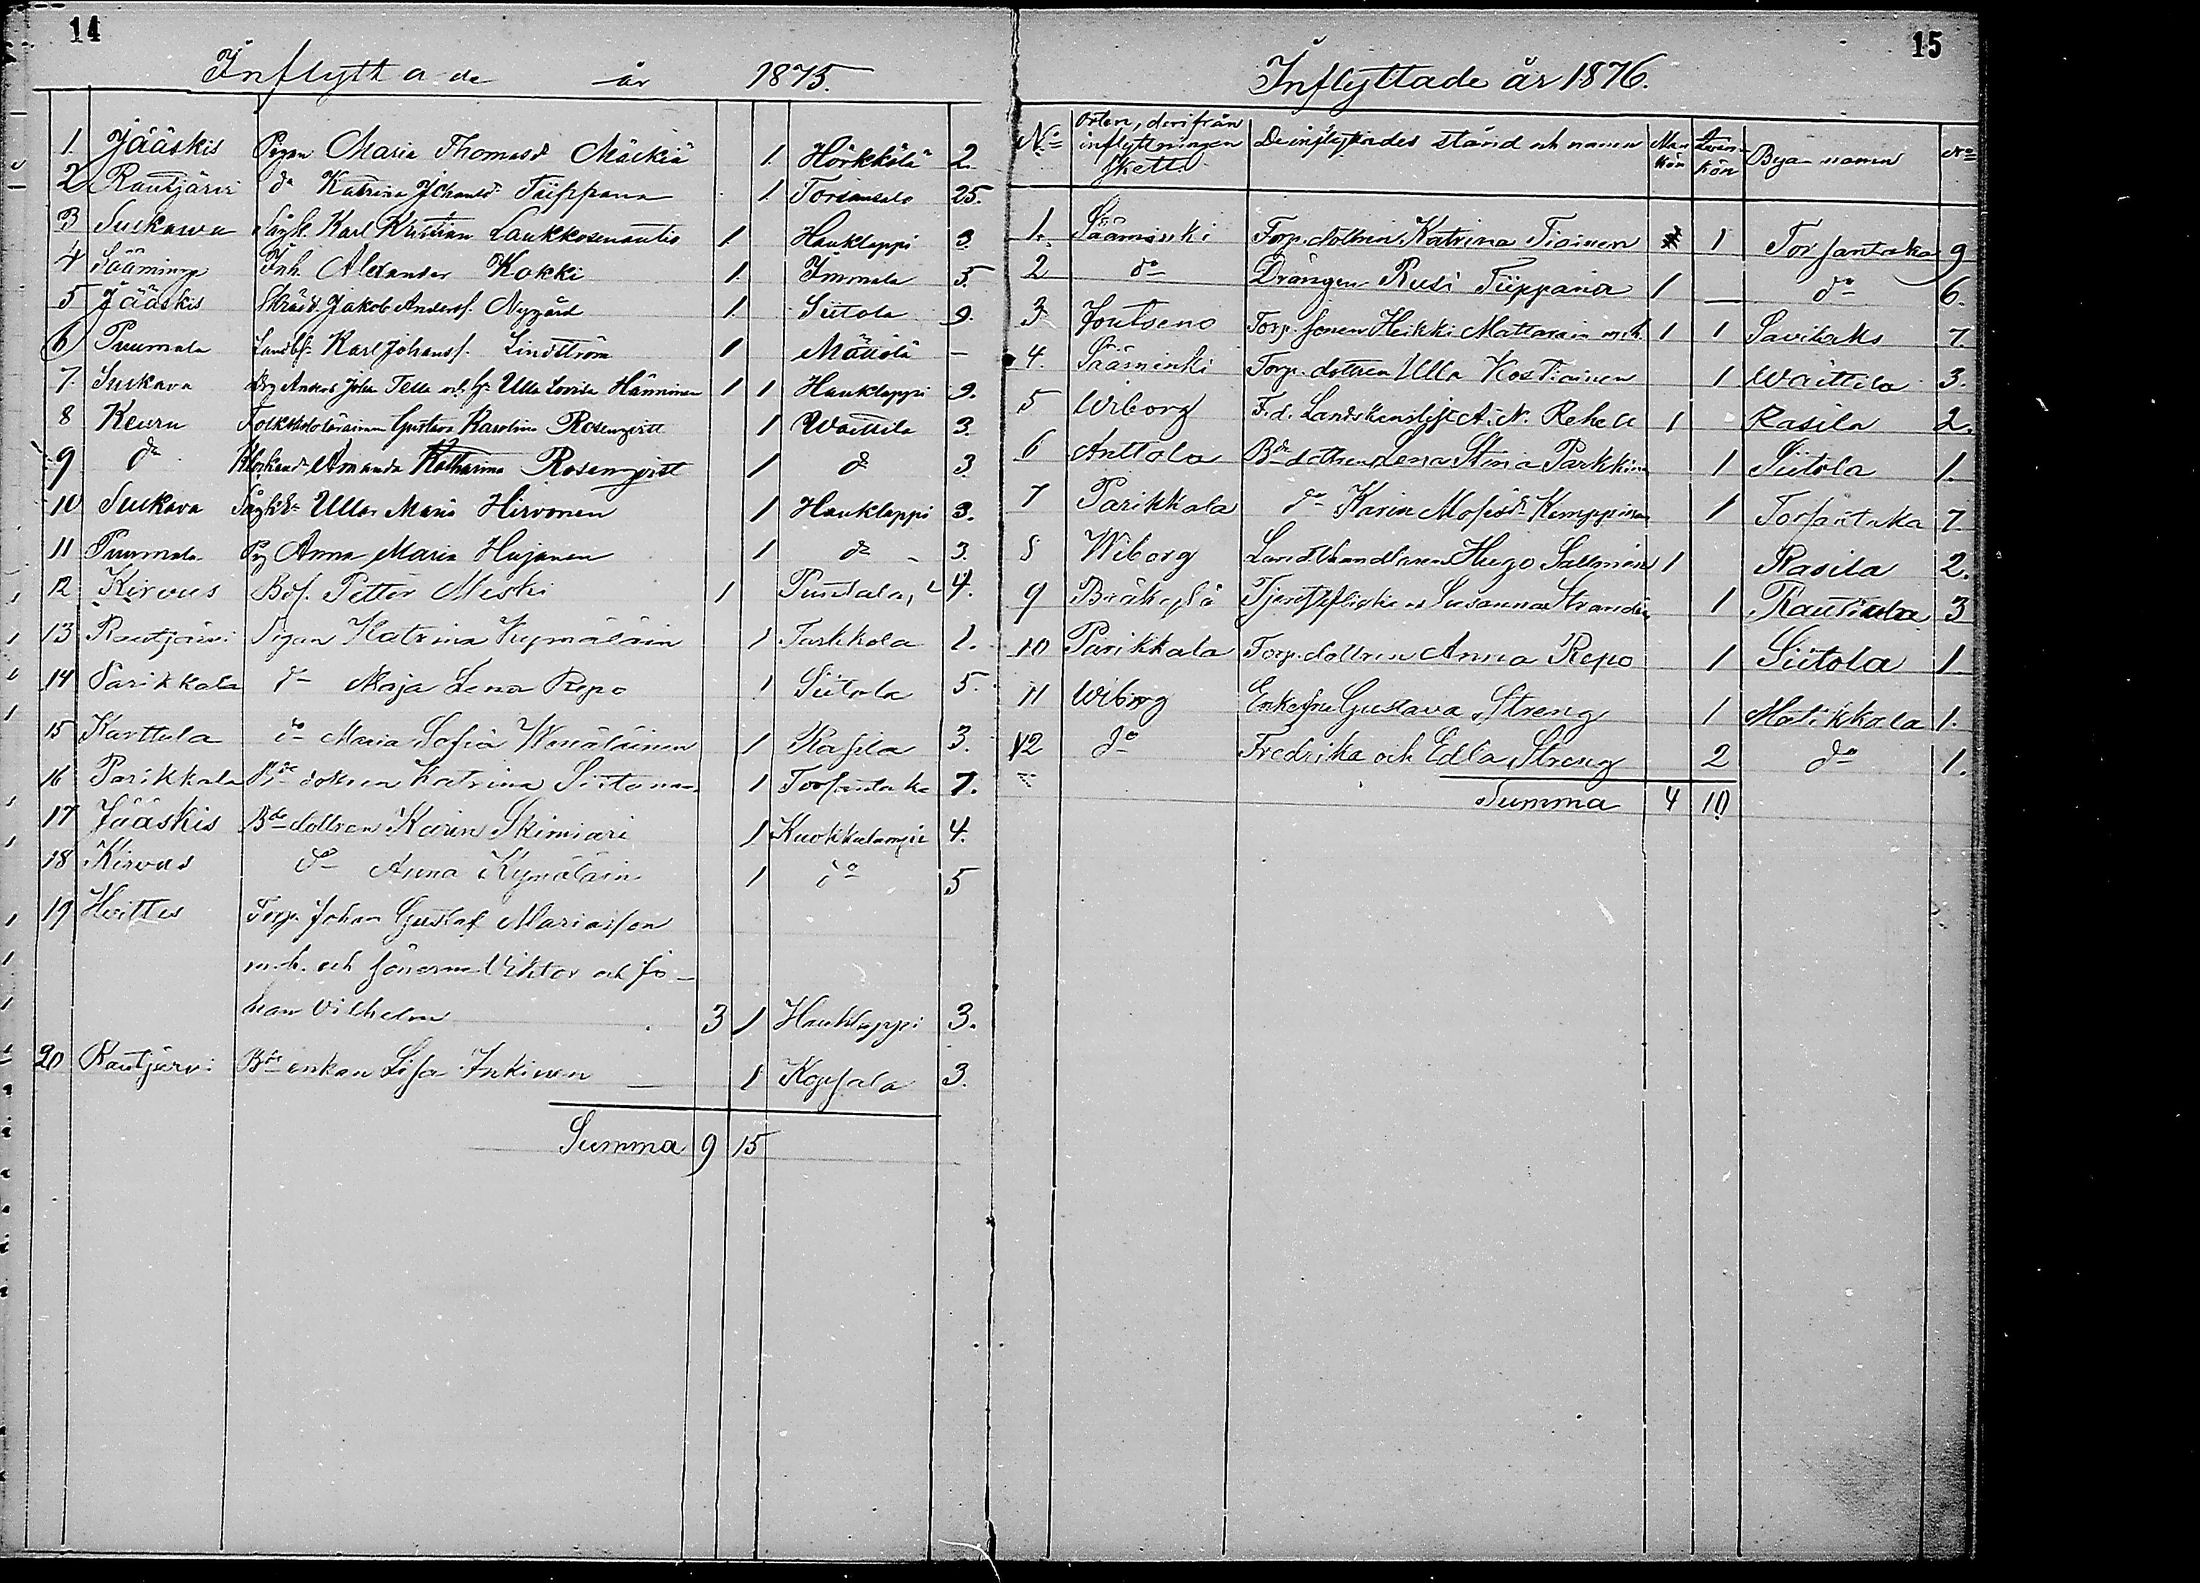 14
Inflyttade år 1875.
1. Jääskis Pigan Maria Thomasd. Mäckiä 1. Hörkkölä 2.
2 Rautjärvi do Katrina Johansd. Tiippana 1. Torsansalo 25.
3 Sulkawa Karl Kristian Laukkosenautio 1. Hauklappi 3.
4 Inh. Alexander Kokki 1. Immala 5.
5 Jääskis Jakob Andersf. Nygård 1. Siitola 9.
6 Puumala Karl Johansf. Lindström 1 Mättölä –
7. Sulkava Johan Tella m.h. Ulla Lovisa Hänninen 1 1 Hauklappi 9.
8 Keuru Gustava Karolina Rosenqvist 1 Waittila 3.
9 do Amanda Katharina Rosenqvist 1 do 3
10 Sulkava Ulla Maria Hirvonen 1 Hauklappi 3.
11 Puumala Pig Anna Maria Hujanen 1 do 3.
12 Kirvus Petter Meski 1 Purtala, 4.
13 Rautjärvi Pigan Katrina Kymäläin 1 Turkkola 1.
14 Parikkala do Maja Lena Repo 1 Siitola 5.
15 Karttula do Maria Sofia Wenäläinen 1 Rasila 3.
16 Parikkala Bde dottren Katrina Siitonen 1 Torsantaka 7.
17 Jääskis Bde dottren Karin Skimiari 1 4.
18 Kirvus do Anna Kymäläin 1 do 5
19 Hvittis Torp. Johan Gustaf Mariasson
m.h. och sönerne Viktor och Jo-
han Vilhelm 3 1 Hauklappi 3.
20 Rautjärvi Bde enkan Lisa Inkinen – 1 Kopsala 3.
Summa 9 15
15
Inflyttade år 1876.
No Orten, derifrån inflyttningen skett. De inflyttades stånd och namn Mankön Qvinkön Byanamn No
1. Sääminki Torp. dottren Katrina Tiainen 1 Torsantaka 9
2 do Drängen Rusi Tiippana 1 — do 6.
3 Joutseno Torp. sonen Heikki Mattarain m.h. 1 1 Savilaks 7.
4. Sääminki Torp. dottren Ulla Kostiainen 1 Waittila 3.
5 Wiborg F.d. A. N. Rehell 1 Rasila 2.
6 Anttola Bde dottren Lena Stina Parkkin 1 Siitola 1.
7 Parikkala do Karin Mosisd. Kemppinen 1 Torsantaka 7
8 Wiborg Landthandlaren Hugo Sallmén 1 Rasila 2.
9 Susanna Strandén 1 Rautiala 3
10 Parikkala Torp. dottren Anna Repo 1 Siitola 1
11 Wiborg Enkefru Gustava Streng 1 Matikkala 1.
12 do Fredrika och Edla Streng 2 do 1.
Summa 4 10